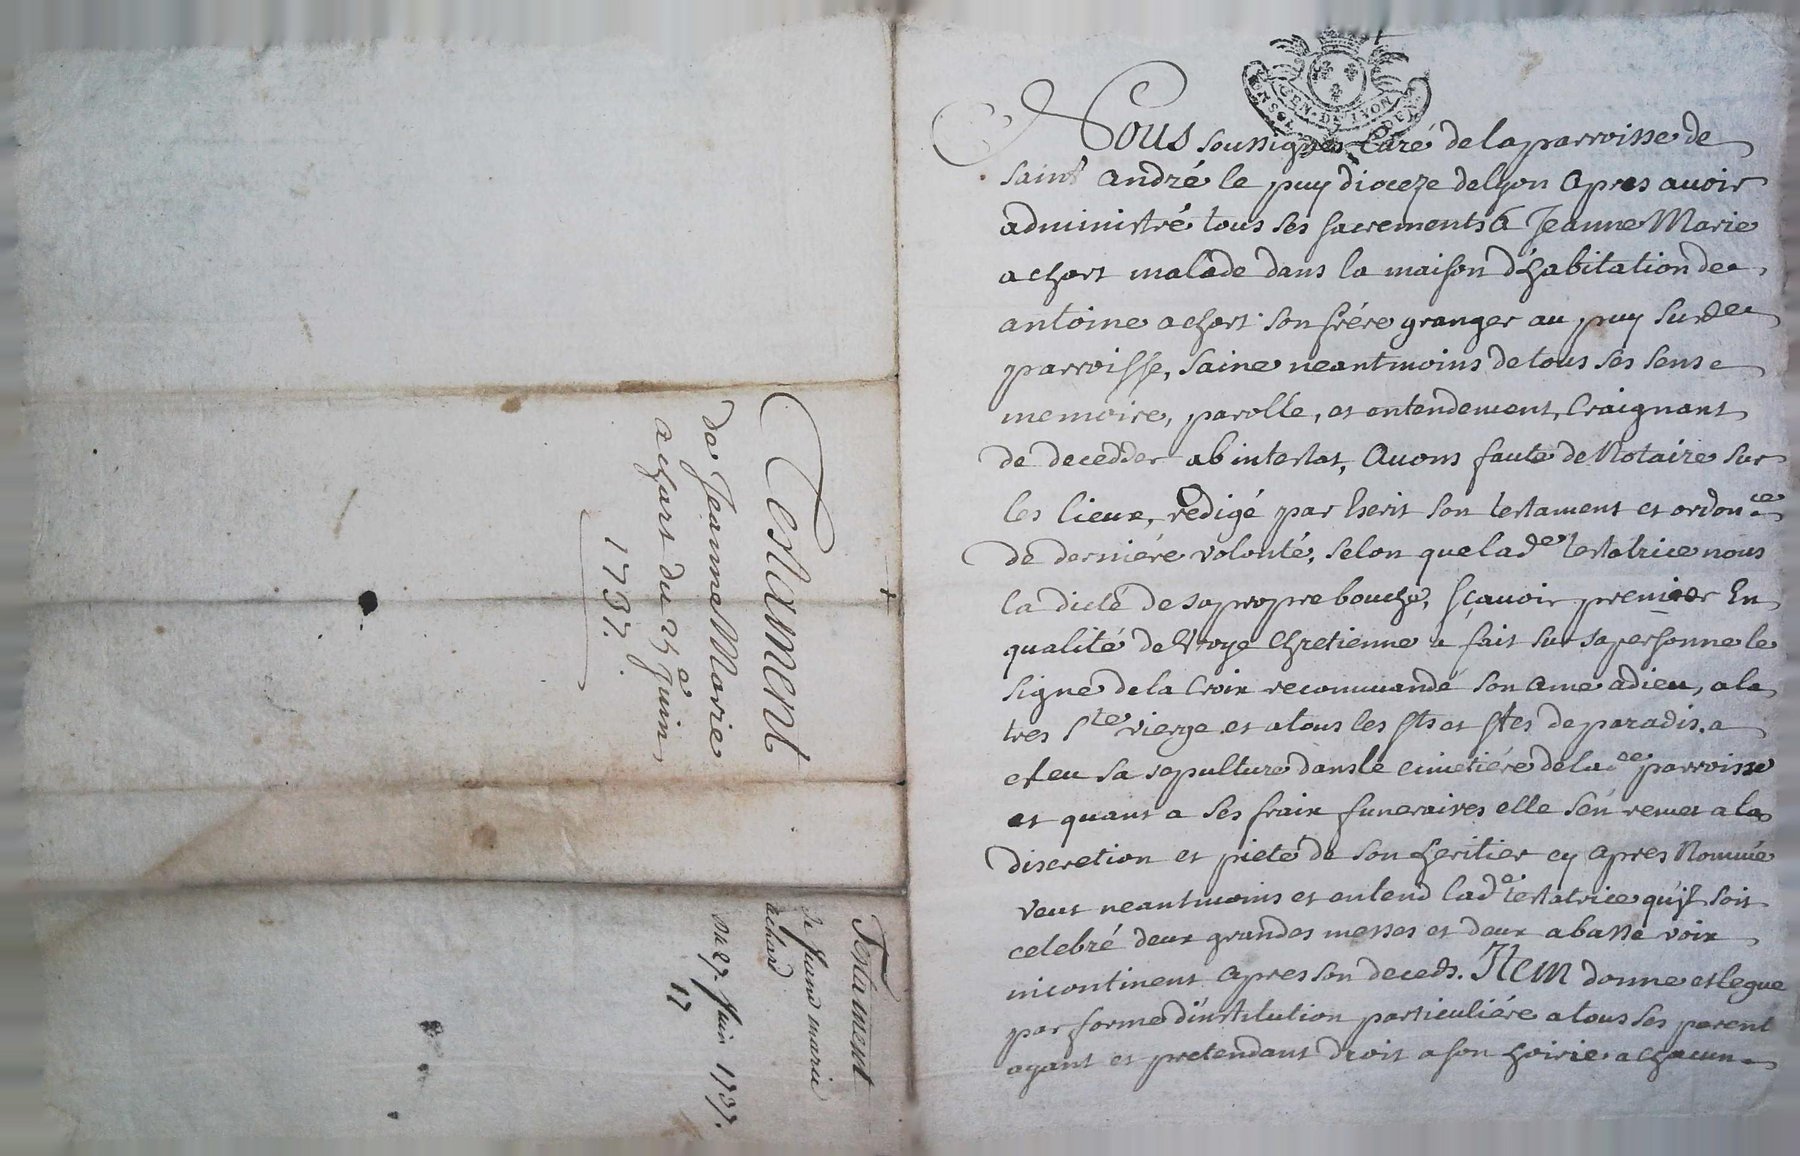 Testament
de Jeanne Marie
achart du 25e Juin
1737.
Testament
de jeanne marie
achard
du 27. juin 1737.
17
GEN. DE LYON
Nous soussignés Curé de la parroisse de
saint andré le puy dioceze de lyon apres avoir
administré tous ses sacrements a Jeanne Marie
achart malade dans la maison d'habitation de
antoine achart son frére granger au puy surde
parroisse, saine neantmoins de tous ses sens
memoire, parolle, et entendement, Craignant
de decedder abintestat, Avons faute de Notaire sur
les lieux, redigé par Escrit son testament et ordonce
de derniére volonté, selon que lade testatrice nous
la dicté de sa propre bouche, sçavoir premier En
qualité de vroye Chretienne a fait sur sa personne le
signe de la Croix recommandé son ame adieu, a la
tres Ste vierge et a tous les Sts et Stes de paradis. a
eleu sa sepulture dans le cimetiére de lade parroisse
et quant a ses fraix funeraires elle s'en remet a la
discretion et pieté de son heritier cy apres Nommé
veut neantmoins et entend lade testatrice qu'jl soit
celebré deux grandes messes et deux a basse voix
incontinent apres son deceds. Item donne et legue
par forme d'institution particuliére a tous ses parent
ayant et pretendant droit a son hoirie a chacun